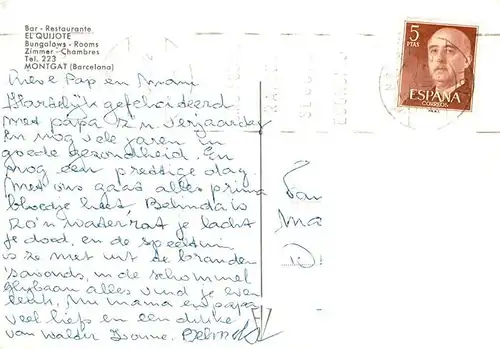 Bar - Restaurante
EL QUIJOTE
Bungalows - Rooms
Zimmer - Chambres
Tel. 223
MONTGAT (Barcelona)
5
PTAS
ESPAÑA
CORREOS
Lieve Pap en Mam
Hartelijk gefeliciteerd
met papa z'n verjaardag
En nog vele jaren in
goede gezondheid. En
nog een prettige dag.
Met ons gaat alles prima
bloedje heet, Belinda is
zo'n waterrat je lacht
je dood, en de speeltuin
is ze niet uit te branden
's avonds, in de schommel
glijbaan alles vind je even
leuk, Nu mama en papa
veel liefs en een dikke
van Walter Ivonne. Belinda